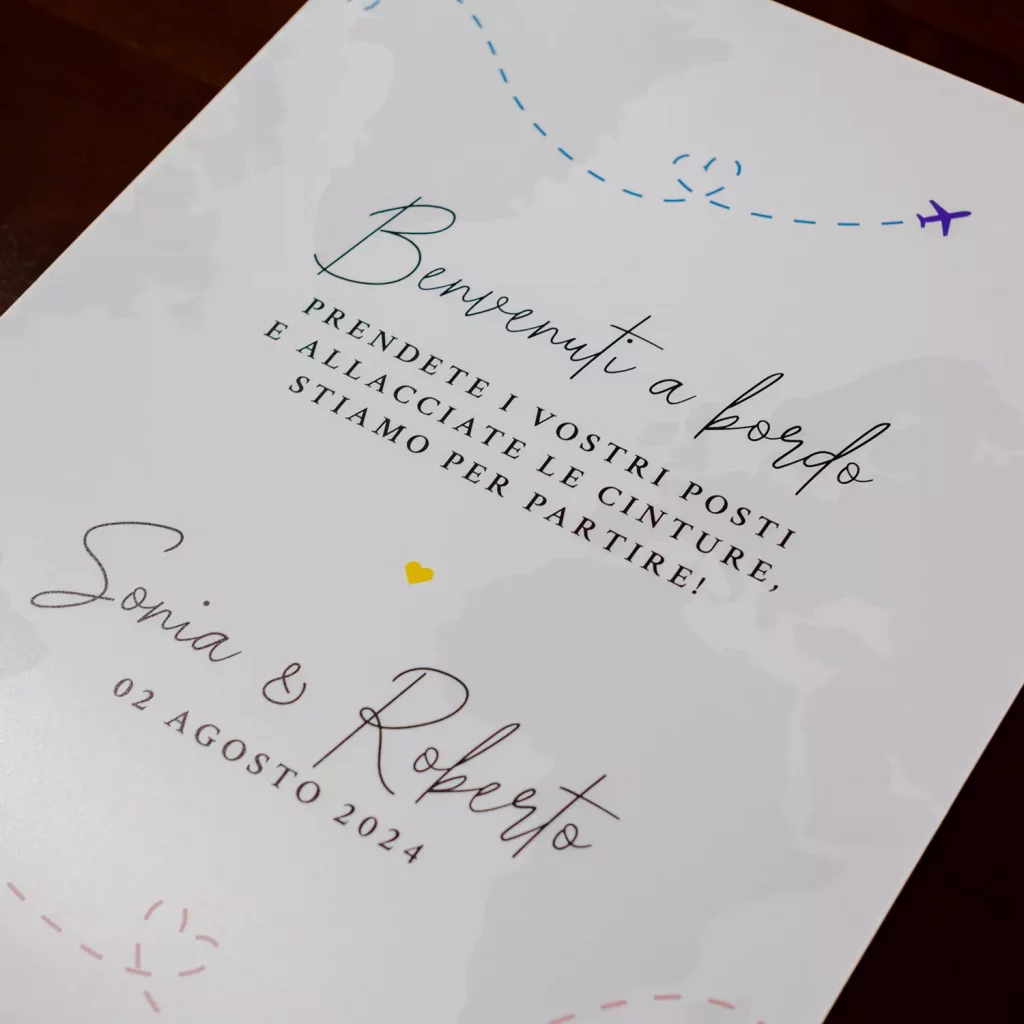 Benvenuti a bordo
PRENDETE I VOSTRI POSTI
E ALLACCIATE LE CINTURE,
STIAMO PER PARTIRE!
Sonia & Roberto
02 AGOSTO 2024